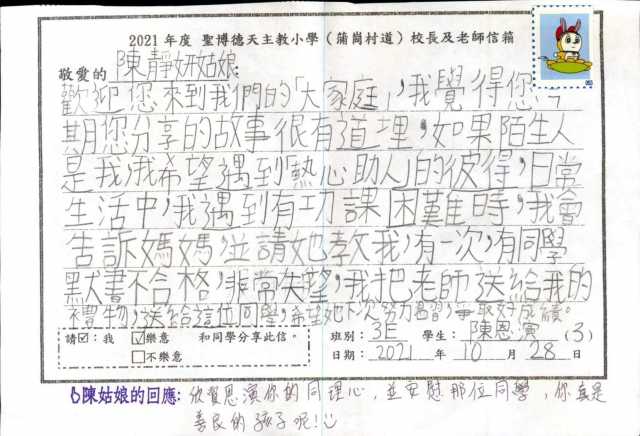 2021 年度 聖博德天主教小學 (蒲崗村道) 校長及老師信箱
敬愛的 陳靜妍姑娘:
歡迎您來到我們的「大家庭」,我覺得您
期您分享的故事很有道埋,如果陌生人
是我,我希望遇到「熱心助人」的彼得,日常
生活中,我遇到有功課困難時,我會
告訴媽媽,並請她教我,有一次,有同學
默書不合格,非常失望,我把老師送給我的
禮物,送給這位同學,希望她下次努力溫習,爭取好成績。
請☑:我 ☑樂意 和同學分享此信。 班別: 3E 學生: 陳恩演 (3)
□不樂意 日期: 2021 年 10 月 28 日
陳姑娘的回應: 欣賞恩演你的同理心,並安慰那位同學,你真是
善良的孩子呢!